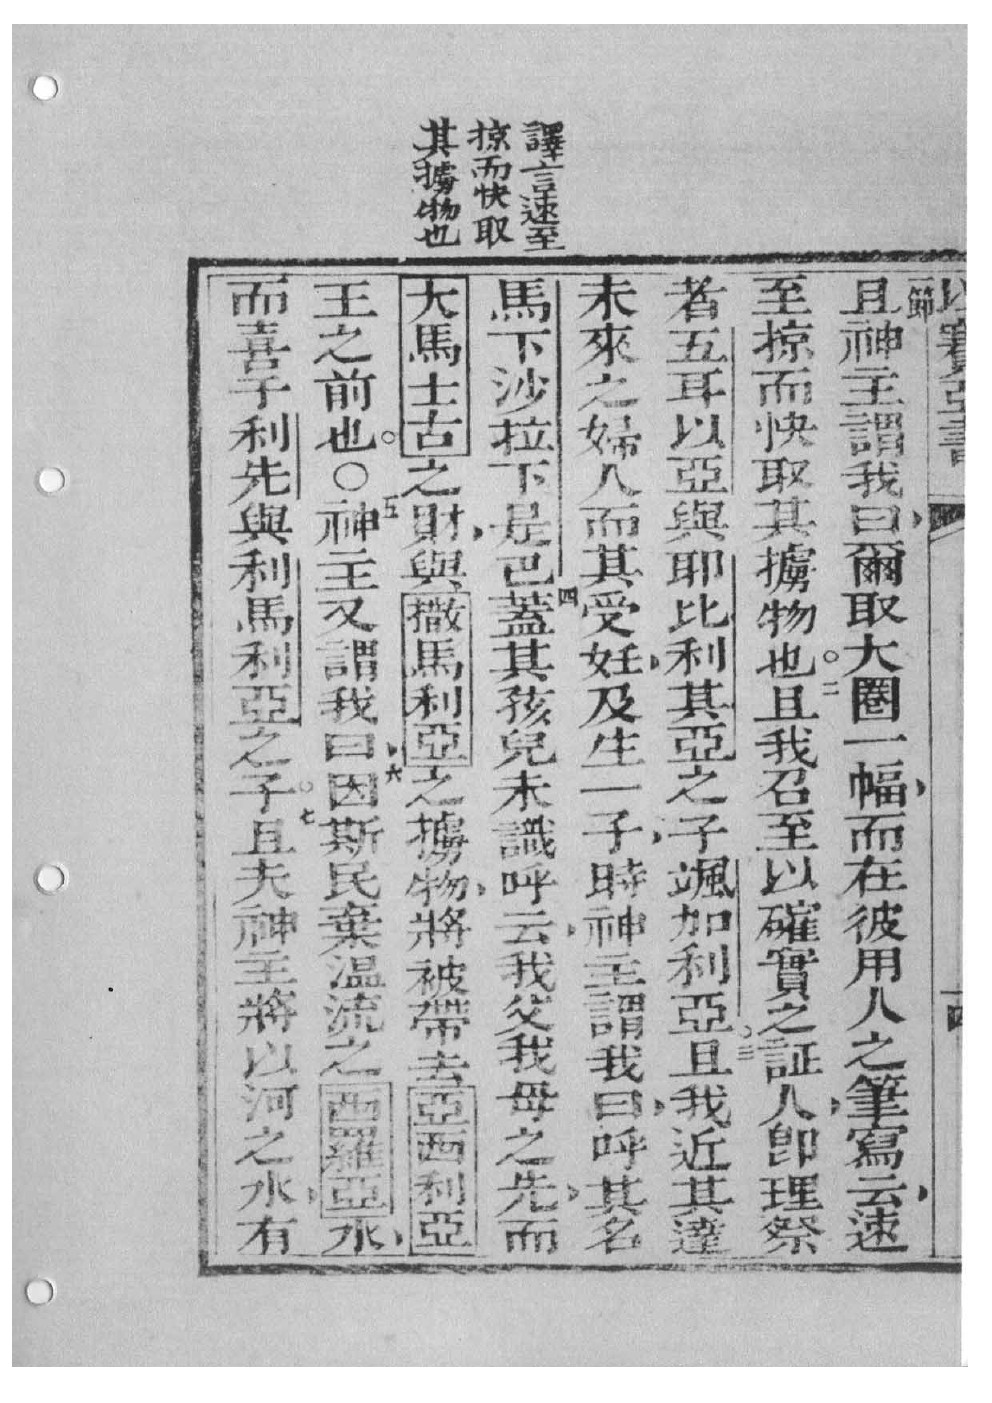 譯言速至
掠而快取
其擄物也
以賽亞書
節
一四
且神主謂我曰爾取大圈一幅而在彼用人之筆寫云速
至掠而快取其擄物也。二且我召至以確實之証人卽理祭
者五耳以亞與耶比利其亞之子颯加利亞。三且我近其達
未來之婦人而其受妊及生一子時神主謂我曰呼其名
馬下沙拉下是巴四蓋其孩兒未識呼云我父我母之先而
大馬士古之財與撒馬利亞之擄物將被帶去亞西利亞
王之前也。○五神主又謂我曰六因斯民棄溫流之西羅亞水
而喜于利先與利馬利亞之子。七且夫神主將以河之水有